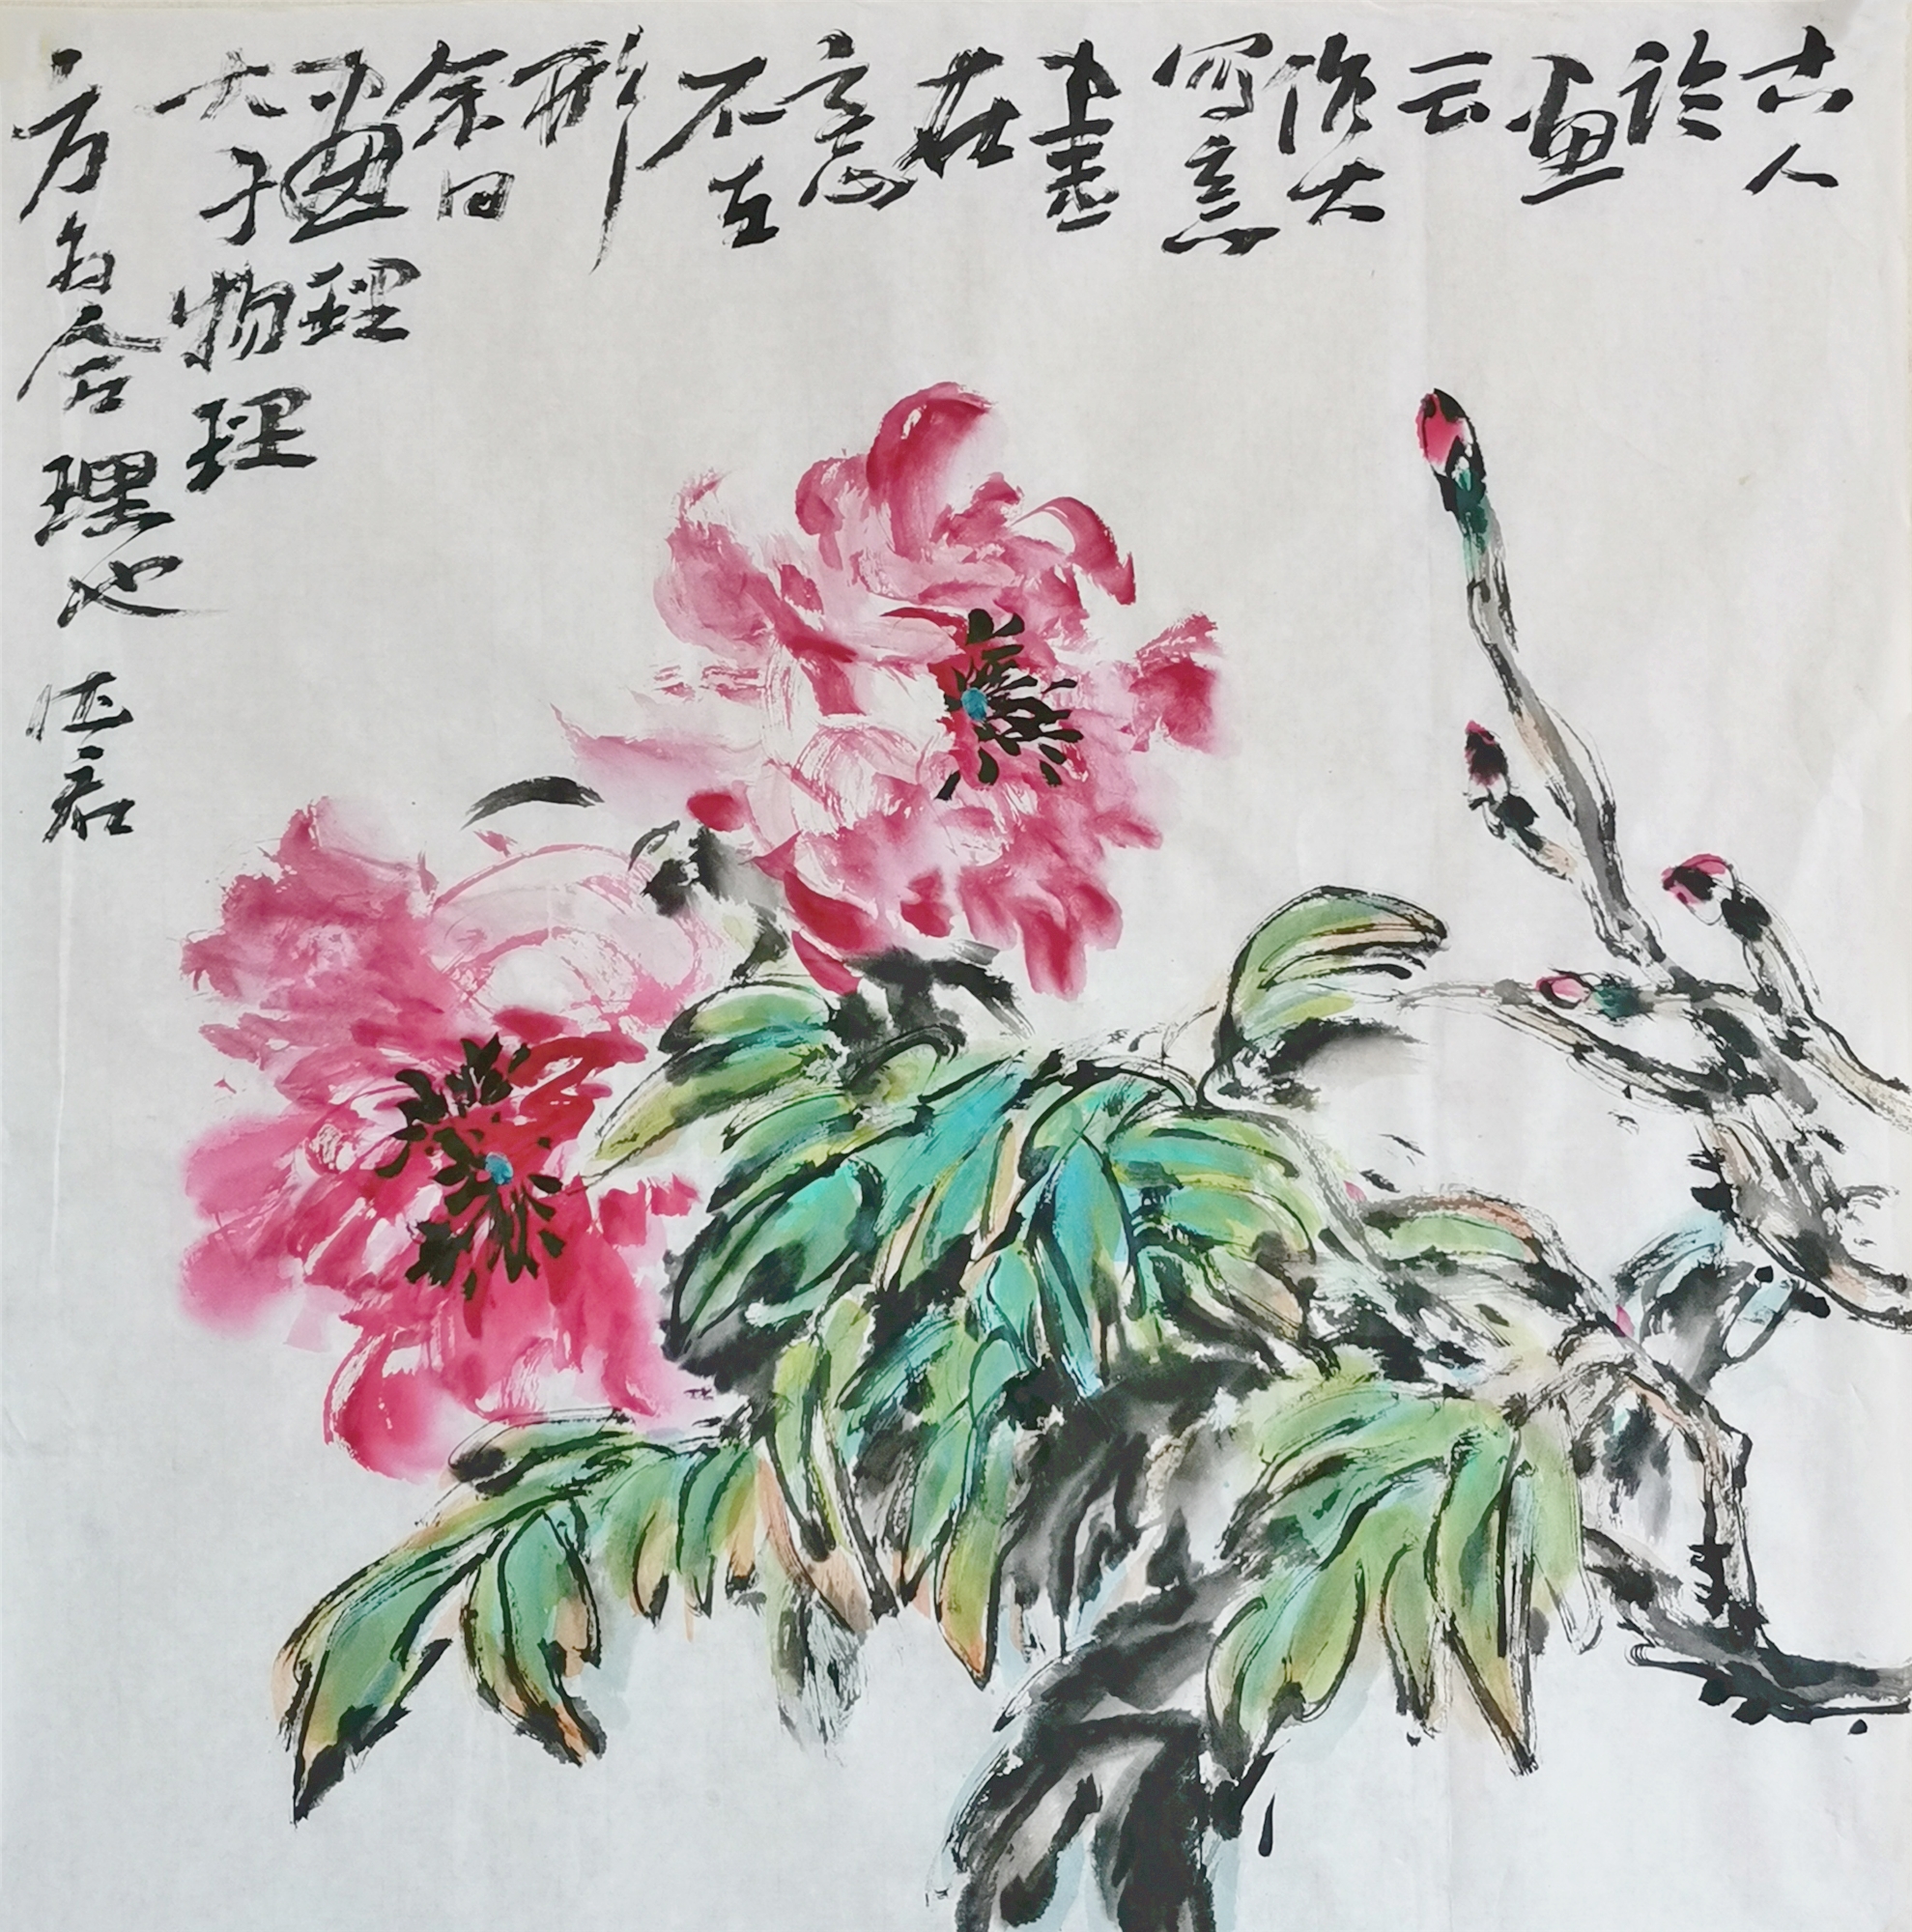 古人
论
画
云
作大
写意
在
意
不在
形
余曰
画理
大于物理
方为合理也
君